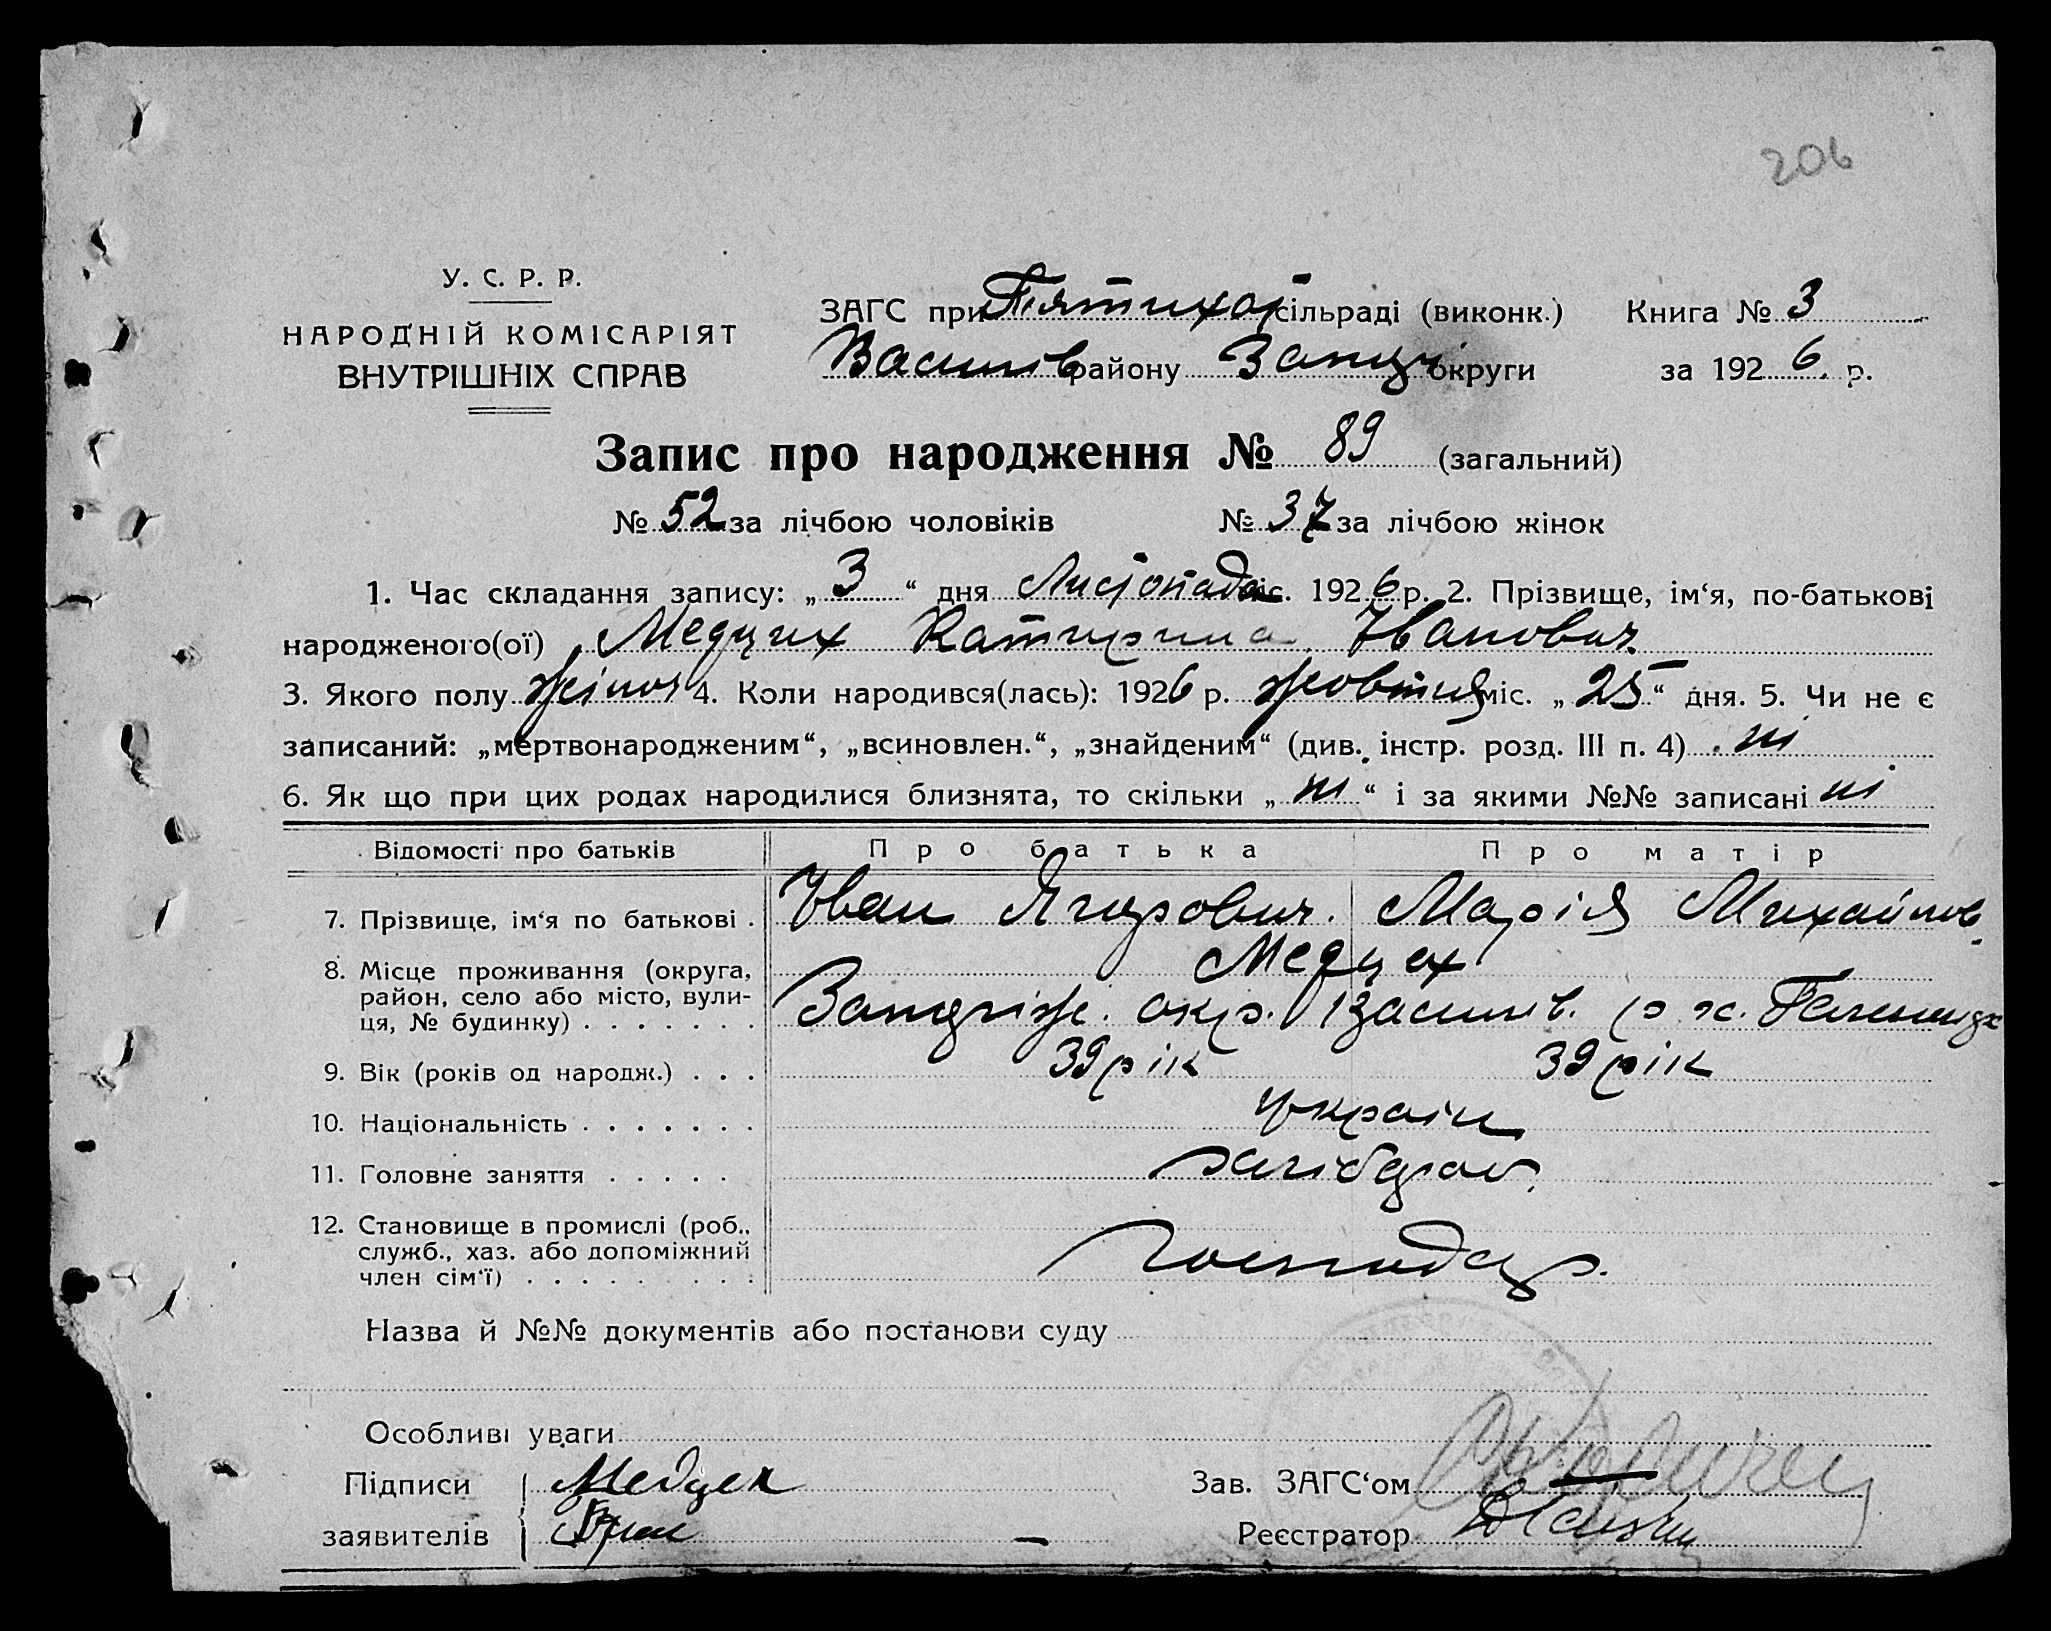 206
У. С. Р. Р.
НАРОДНІЙ КОМІСАРІЯТ
ВНУТРІШНІХ СПРАВ
ЗАГС при Пятихат сільраді (виконк.) Книга № 3
Василів району Запор округи за 1926 р.
Запис про народження № 89 (загальний)
№ 52 за лічбою чоловіків № 37 за лічбою жінок
1. Час складання запису: „3“ дня Листопада міс. 1926 р. 2. Прізвище, ім‘я, по-батькові
народженого(ої) Медцих Катирина Іванович
3. Якого полу жіноч 4. Коли народився(лась): 1926 р. жовтня міс. „25“ дня. 5. Чи не є
записаний: „мертвонародженим“, „всиновлен.“, „знайденим“ (див. інстр. розд. III п. 4) ні
6. Як що при цих родах народилися близнята, то скільки „ні“ і за якими №№ записані ні
Відомості про батьків Про батька Про матір
7. Прізвище, ім‘я по батькові . Іван Ягирович. Марія Михайлов.
Медцех
8. Місце проживання (округа,
район, село або місто, вули-
ця, № будинку) . . . . . . . окр. Василів. р
9. Вік (років од народж.) . . . 39 рік 39 рік
10. Національність . . . . . . . україн
11. Головне заняття . . . . . хлібороб.
12. Становище в промислі (роб.,
служб., хаз. або допоміжний
член сім‘ї) . . . . . . . . . Господар.
Назва й №№ документів або постанови суду
Особливі уваги
Підписи Медцех Зав. ЗАГС‘ом
заявителів Реєстратор